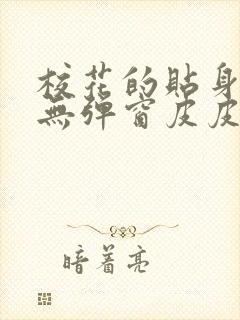 校花的貼身
無弹窗皮皮
暗着亮